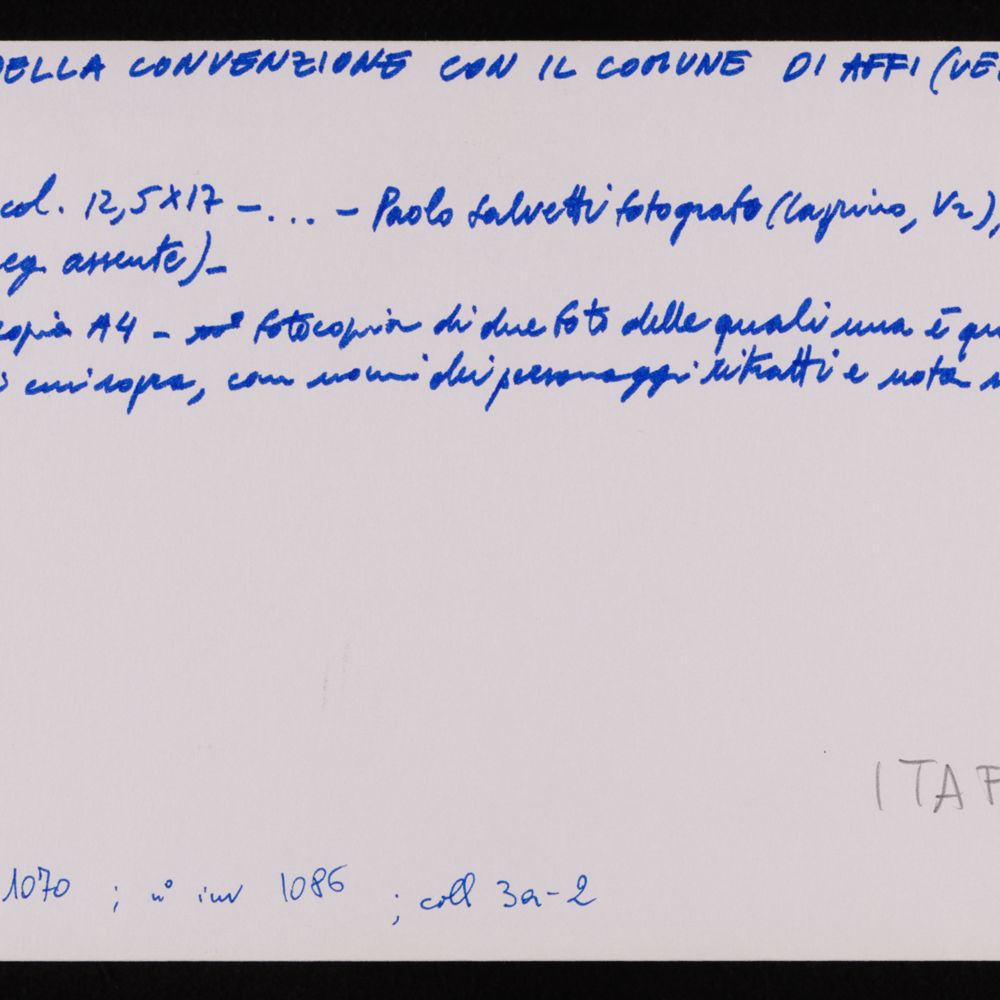 DELLA CONVENZIONE CON IL COMUNE DI AFFI (VE
col. 12,5x17 - ... - Paolo Salvetti fotografo (Caprino, Vr),
eg. assente) -
copia A4 - fotocopia di due foto delle quali una è qu
cui sopra, con nomi dei personaggi ritratti e nota
ITAF
1070 ; n° inv 1086 ; coll 3a-2